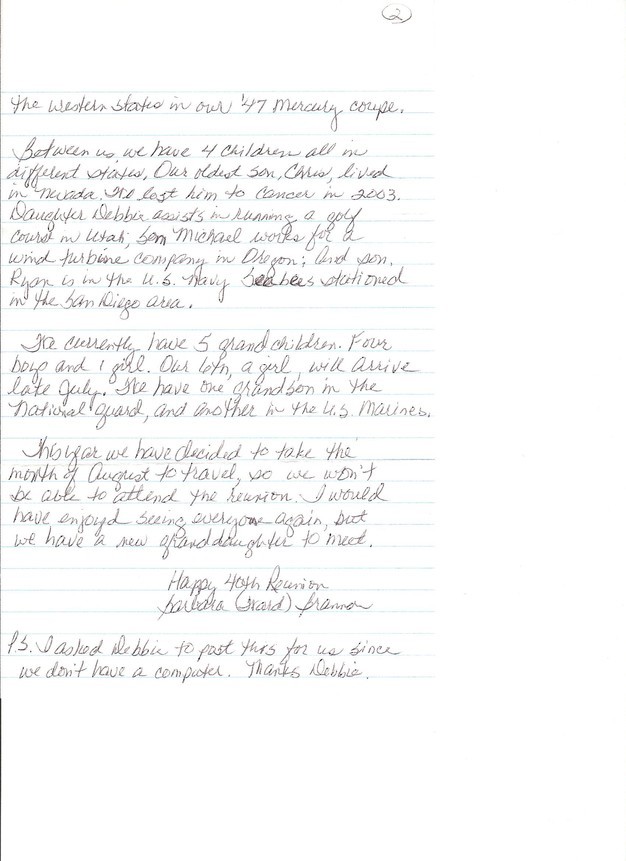 2
the western states in our '47 Mercury coupe.
Between us, we have 4 children all in
different states. Our oldest son, Chris, lived
in Nevada. We lost him to cancer in 2003.
Daughter Debbie assists in running a golf
course in Utah; son Michael works for a
wind turbine company in Oregon; and son,
Ryan is in the U.S. Navy Seabees stationed
in the San Diego area.
We currently have 5 grandchildren. Four
boys and 1 girl. Our 6th, a girl, will arrive
late July. We have one grandson in the
National Guard, and another in the U.S. Marines.
This year we have decided to take the
month of August to travel, so we won't
be able to attend the reunion. I would
have enjoyd seeing everyone again, but
we have a new granddaughter to meet.
Happy 40th Reunion
Barbara (Ward) Brannon
P.S. I asked Debbie to post this for us since
we don't have a computer. Thanks Debbie.